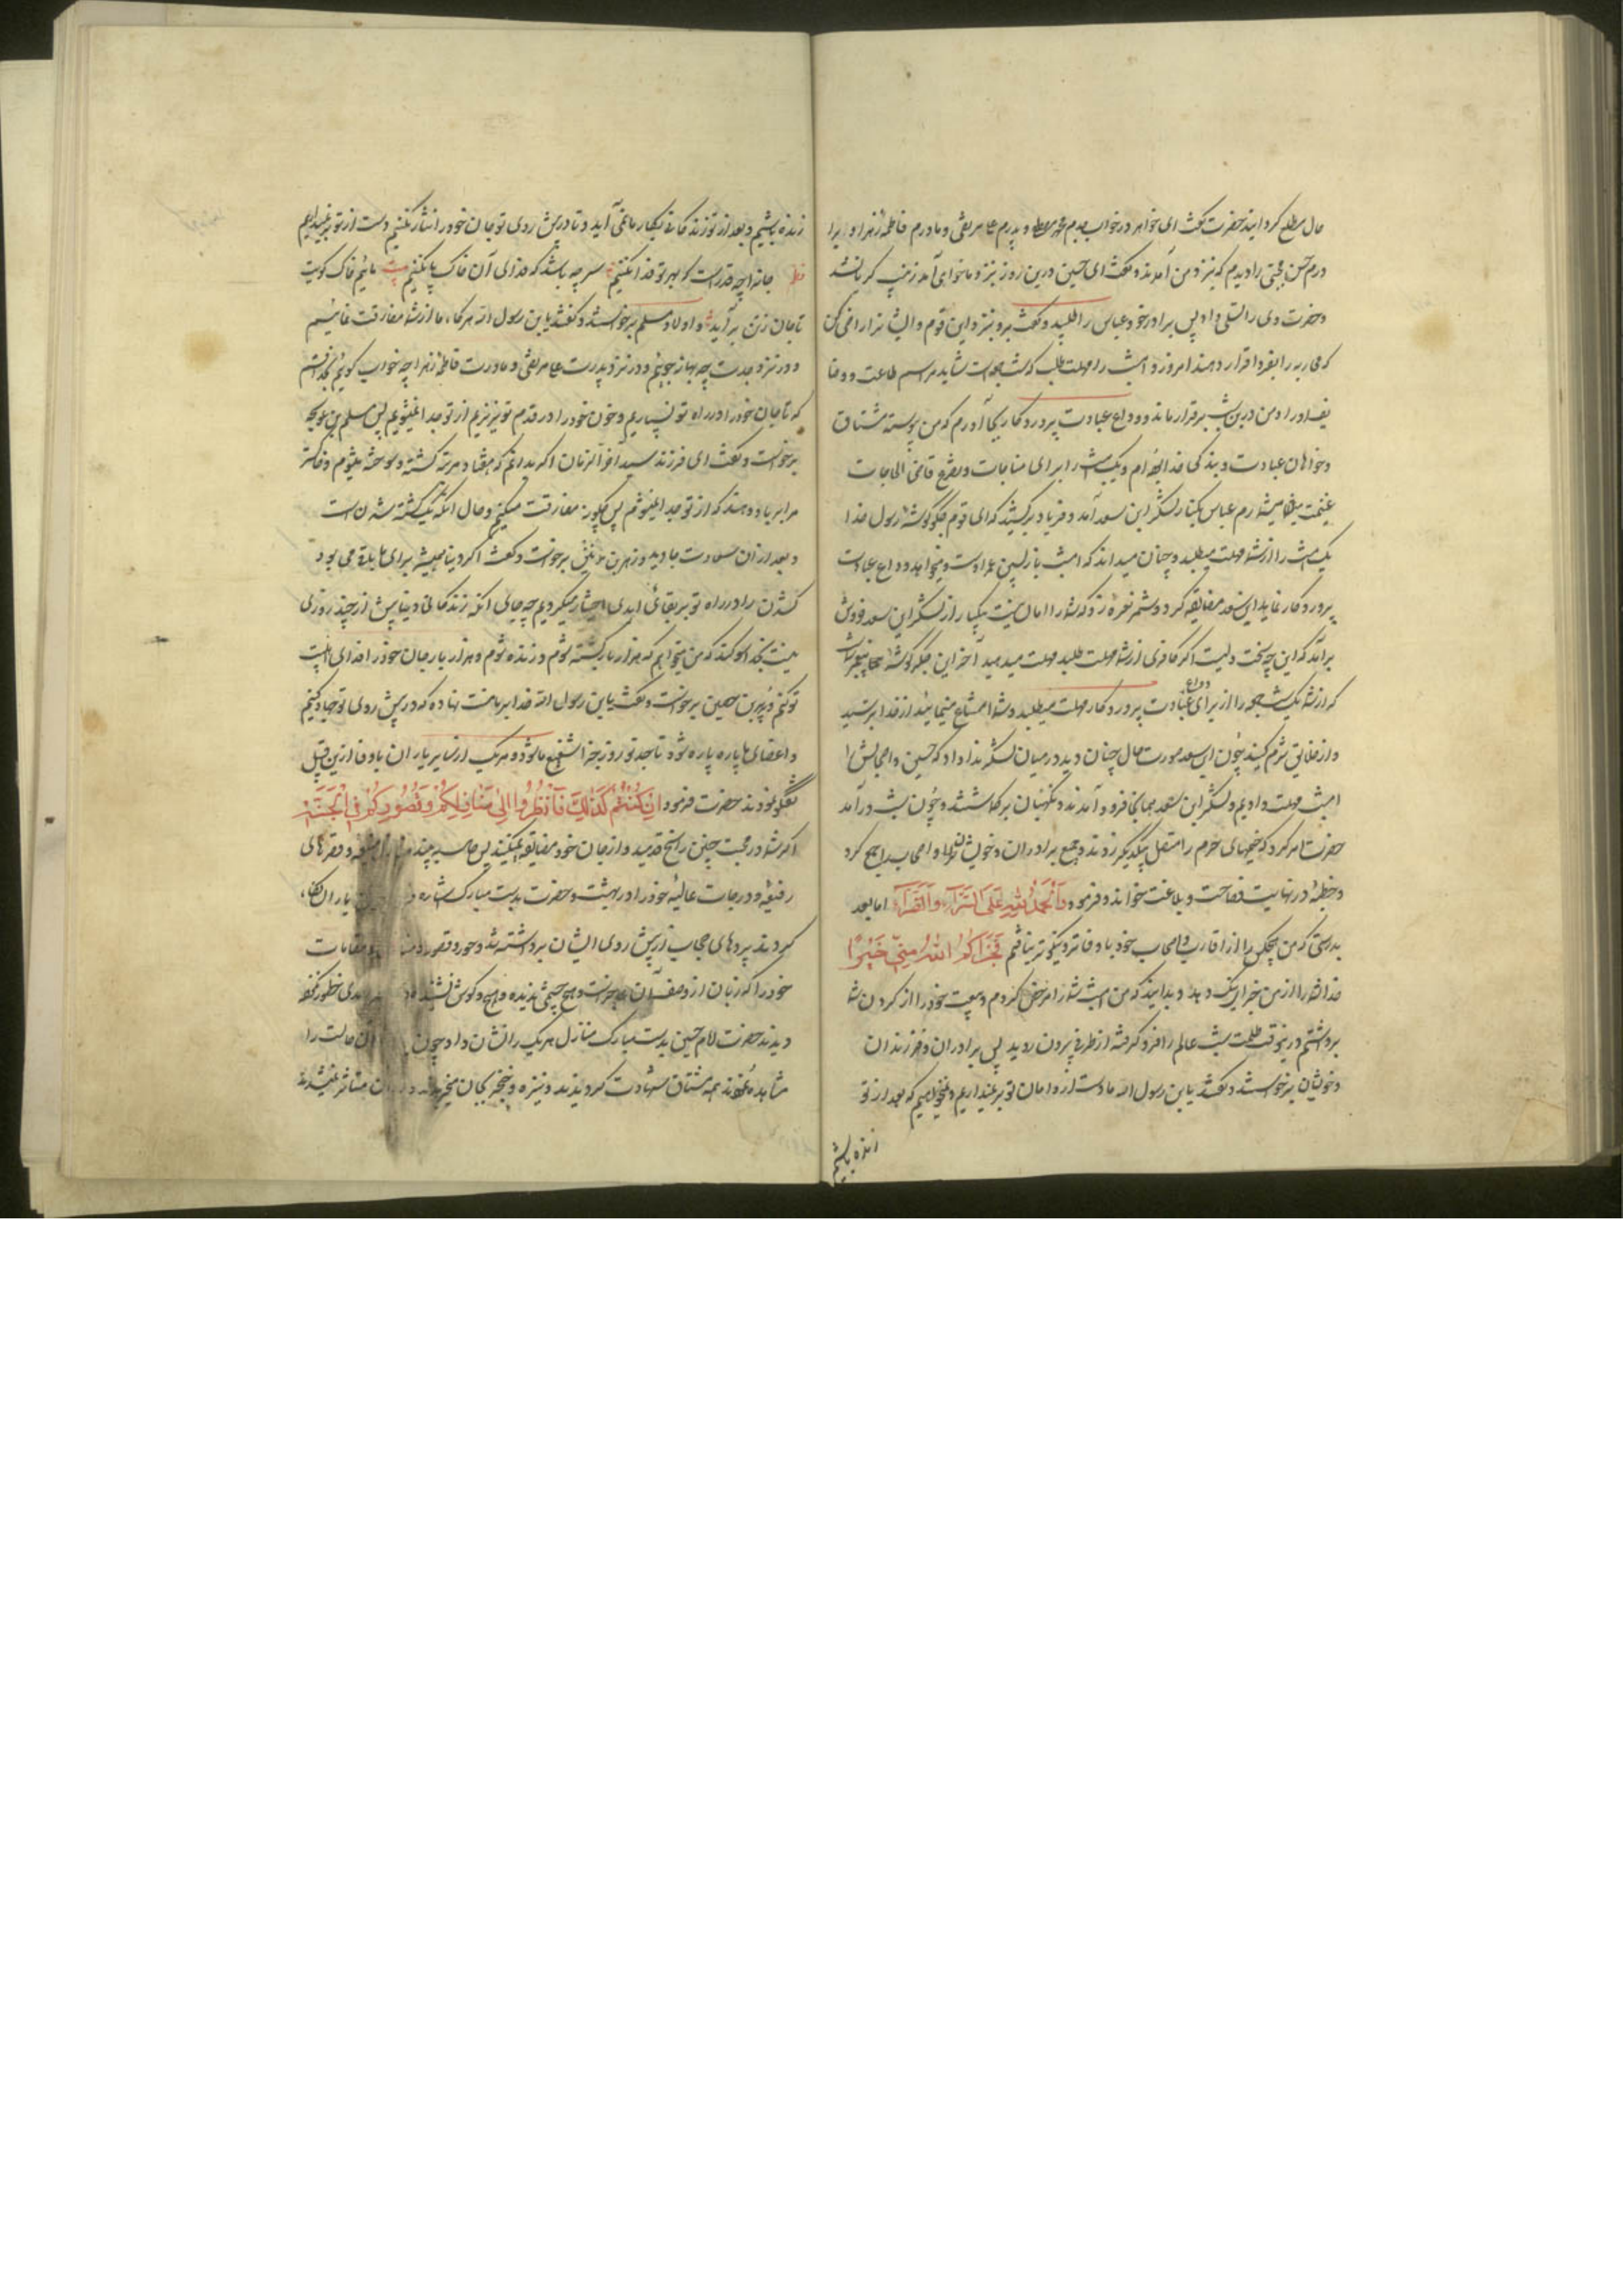 حال مطلع کردانید حضرت کفت ای خواهر در خواب جدم محمد مصطفی و پدرم علی مرتضی و مادرم فاطمه زهرا و برا
درم حسن مجتبی را دیدم که نزد من آمدند و کفتند ای حسین درین روز نزد ما خواهی آمد زینب کریان شد
و حضرت وی را تسلی داد پس برادر خود عباس را طلبید و کفت برو نزد این قوم و ایشانرا راضی کن
که محاربه را بفردا قرار دهند امروز و امشب را مهلت طلب که شب جمعه است شاید مراسم طاعت و وفا
من درین شب برقرار ماند و وداع عبادت پروردکار بجا آورم که من پیوسته مشتاق
و خواهان عبادت و بندکی خدا بوده ام و یک شب را برای مناجات و تضرع قاضی الحاجات
غنیمت میشمارم عباس بکنار لشکر ابن سعد آمد و فریاد برکشید که ای قوم جکرکوشه رسول خدا
یک شب را از شما مهلت میطلبد و چنان میداند که امشب بازپسین عمر اوست و میخواهد وداع عبادت
پروردکار نماید ابن سعد مضایقه کرد و شمر نعره زد که شما را امان نیست یکبار از لشکر ابن سعد خروش
برآمد که این چه سخت دلیست اکر کافری از شما مهلت طلبد مهلت میدهید آخر این جکرکوشه پیغمبر شماست
که از شما یک شب جمعه را از برای وداع عبادت پروردکار مهلت میطلبد و شما امتناع مینمایید از خدا بترسید
و از خلایق شرم کنید چون ابن سعد صورت حال چنان دید در میان لشکر ندا داد که حسین و اصحابش را
امشب مهلت دادیم و لشکر ابن سعد همانجا فرود آمدند و نکهبانان برکماشتند و چون شب درآمد
حضرت امر کرد که خیمهای حرم را متصل بیکدیکر زدند و جمیع برادران و خویشان و اصحاب را جمع کرد
و خطبه در نهایت فصاحت و بلاغت خواند و فرمود وَاَلْحَمْدُ لِلّٰهِ عَلَی السَّرَّآءِ وَالضَّرَّآءِ اما بعد
بدرستی که من هیچکس را از اقارب و اصحاب خود با وفاتر و نیکوتر نیافتم فَجَزَاکُمُ اللّٰهُ مِنّی خَیْرًا
خدا شما را از من جزای نیک دهد و بدانید که من امشب شما را مرخص کردم و بیعت خود را از کردن شما
برداشتم درینوقت ظلمت شب عالم را فرو کرفته از طرفی بیرون روید پس برادران و فرزندان
و خویشان برخواستند و کفتند یا بن رسول الله ما دست از دامان تو برنمیداریم و نمیخواهیم که بعد از تو
زنده باشیم
زنده باشیم و بعد از تو زندکانی بچکار ما می آید و تا در پیش روی تو جان خود را نثار نکنیم دست از تو برنمیداریم
جانرا چه قدر است که بهر تو فدا نکنیم سر چه باشد که فدای آن خاک پا نکنیم بیت مائیم خاک کویت
تا جان زتن برآید و اولاد مسلم برخواستند و کفتند یا بن رسول الله هرکاه ما از شما مفارقت نمائیم
و در نزد جدت چه بهانه جوئیم و در نزد پدرت علی مرتضی و مادرت فاطمه زهرا چه جواب کوئیم
که تا جان خود را در راه تو نسپاریم و خون خود را در قدم تو نریزیم از تو جدا نمیشویم پس مسلم بن عوسجه
برخواست و کفت ای فرزند سید آخرالزمان اکر بدانم که هفتاد مرتبه کشته و سوخته میشوم و خاکستر
مرا بر باد دهند که از تو جدا نمیشوم پس چکونه مفارقت میکنم و حال آنکه یک کشته شدن است
و بعد از آن سعادت جاوید و زهیر بن قین برخواست و کفت اکر دنیا همیشه برای ما باقی می بود
کشتن را در راه تو بر بقای ابدی اختیار میکردیم چه جای آنکه زندکانی دنیا بیش از چند روزی
نیست بخدا سوکند که من میخواهم که هزار بار کشته شوم و زنده شوم و هزار بار جان خود را فدای اهلبیت
تو کنم و بریر بن حصین برخواست و کفت یا بن رسول الله خدا بر ما منت نهاده که در پیش روی تو جهاد کنیم
و اعضای ما پاره پاره شود تا جد تو روز جزا شفیع ما شود و هریک از سایر یاران باوفا ازین قبیل
تکلم نمودند حضرت فرمود اِنْ کُنْتُمْ کَذٰلِکَ فَانْظُرُوا اِلٰی مَنَازِلِکُمْ وَقُصُورِکُمْ فِی الْجَنَّةِ
اکر شما در محبت چنین راسخ قدمید و از جان خود مضایقه نمیکنید پس و قصرهای
رفیعه و درجات عالیه خود را در بهشت و حضرت بدست مبارک اشاره یاران
کردند پردهای حجاب از پیش روی ایشان برداشته شد و حور و قصور و مقامات
خود را که زبان از وصف آن عاجز است و هیچ چشمی ندیده و هیچ کوش نشنیده خطور نکرده
دیدند حضرت امام حسین بدست مبارک منازل هریک را نشان داد و چون آن حالت را
مشاهده نمودند همه مشتاق شهادت کردیدند و نیزه و خنجر بجان میخریدند متاثر نمیشدند